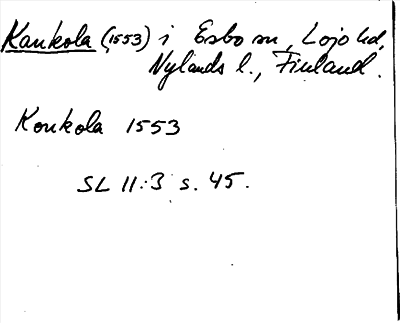 Kaukola (1553) i Esbo sn, Lojo hd,
Nylands l., Finland.
Konkola 1553
SL 11:3 s. 45.